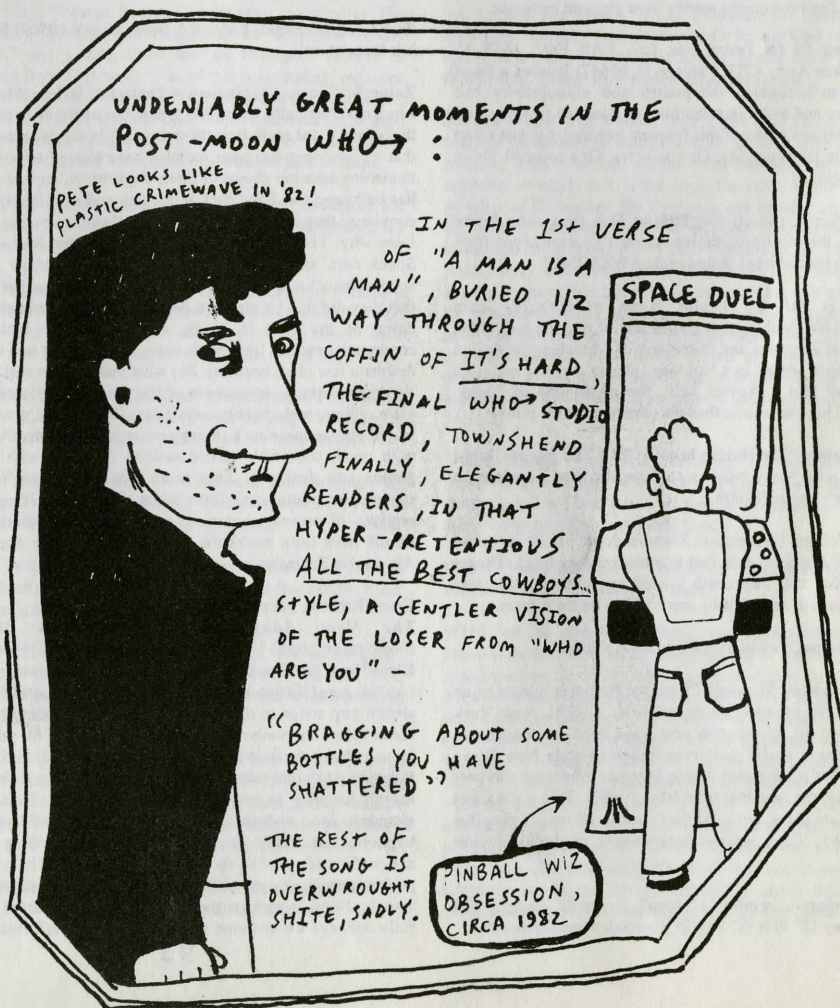 UNDENIABLY GREAT MOMENTS IN THE
POST-MOON WHO→ :
PETE LOOKS LIKE
PLASTIC CRIMEWAVE IN '82!
IN THE 1st VERSE
OF "A MAN IS A
MAN", BURIED 1/2
WAY THROUGH THE
COFFIN OF IT'S HARD,
THE FINAL WHO→ STUDIO
RECORD, TOWNSHEND
FINALLY, ELEGANTLY
RENDERS, IN THAT
HYPER-PRETENTIOUS
ALL THE BEST COWBOYS...
STYLE, A GENTLER VISION
OF THE LOSER FROM "WHO
ARE YOU" –
"BRAGGING ABOUT SOME
BOTTLES YOU HAVE
SHATTERED"
THE REST OF
THE SONG IS
OVERWROUGHT
SHITE, SADLY.
SPACE DUEL
PINBALL WIZ
OBSESSION
CIRCA 1982